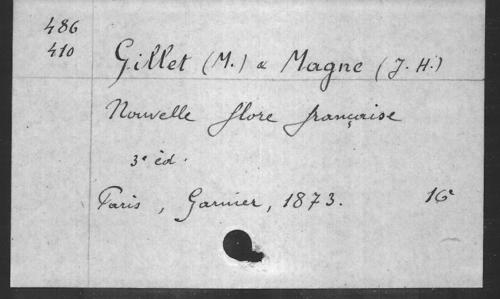 486
410
Gillet (M.) & Magne (J. H.)
Nouvelle flore française
3e éd.
Paris, Garnier, 1873. 16°